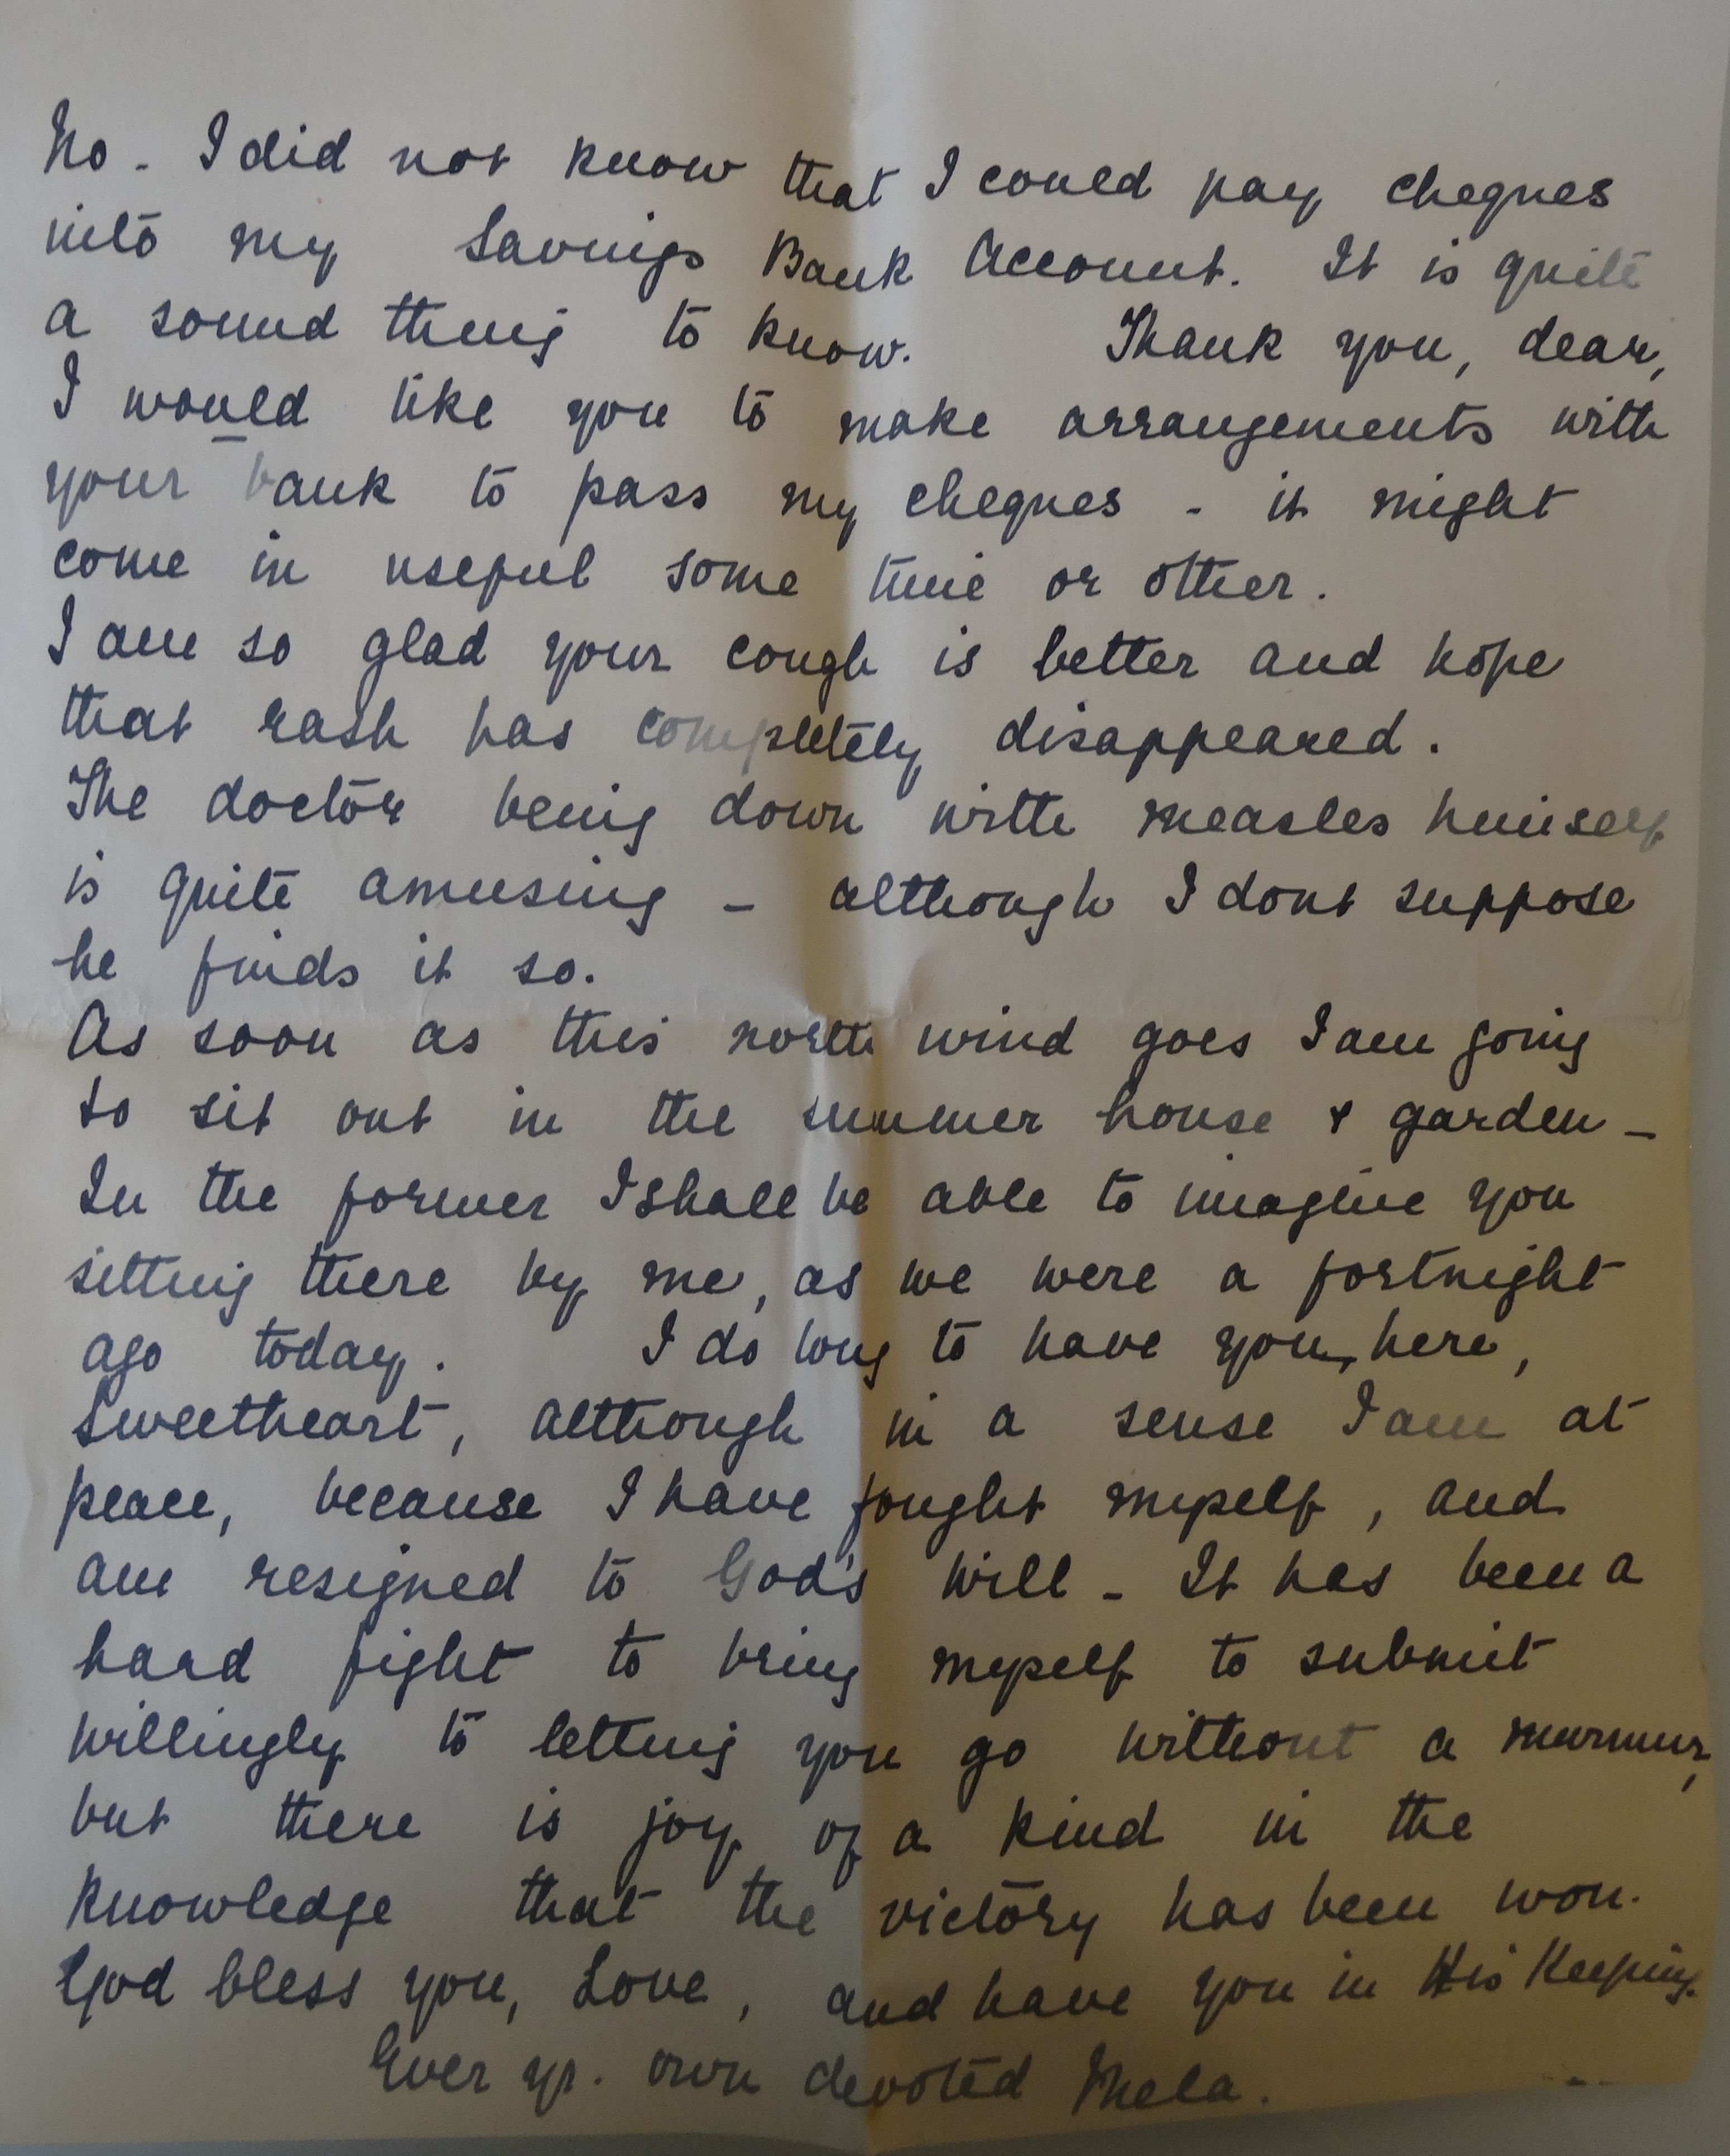 No - I did not know that I could pay cheques
into my Savings Bank Account. It is quite
a sound thing to know. Thank you, dear,
I would like you to make arrangements with
your bank to pass my cheques - it might
come in useful some time or other.
I am so glad your cough is better and hope
that rash has completely disappeared.
The doctor being down with measles himself
is quite amusing - although I dont suppose
he finds it so.
As soon as this north wind goes I am going
to sit out in the summer house & garden -
In the former I shall be able to imagine you
sitting there by me, as we were a fortnight
ago today. I do long to have you, here,
Sweetheart, although in a sense I am at
peace, because I have fought myself, and
am resigned to God's will - It has been a
hard fight to bring myself to submit
willingly to letting you go without a murmur,
but there is joy of a kind in the
knowledge that the victory has been won.
God bless you, Love, and have you in His Keeping.
Ever yr. own devoted Mela.